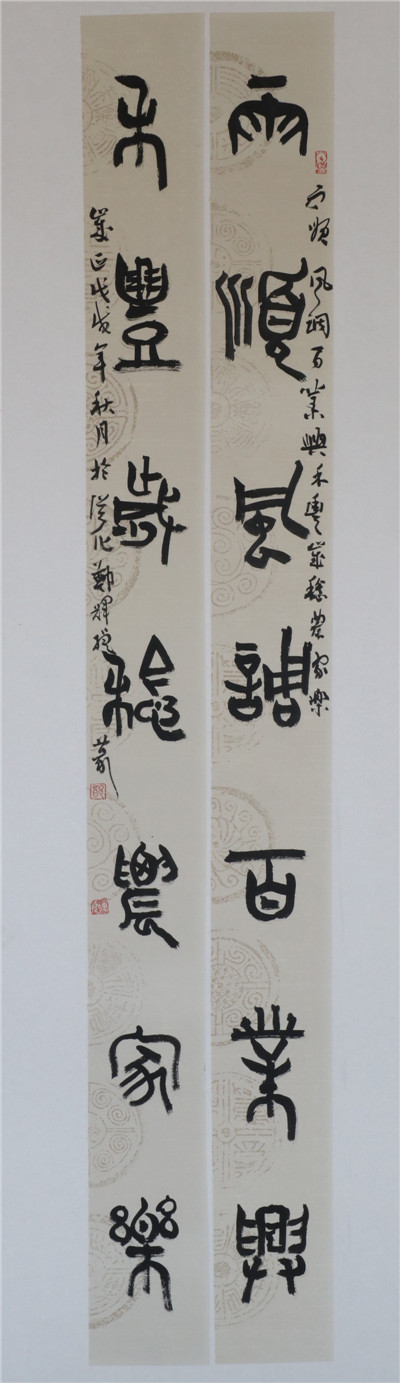 雨順風調百業興
雨順風調百業興禾豐歲稔農家樂
禾豐歲稔農家樂
歲在戊戌年秋月於從化鄭輝